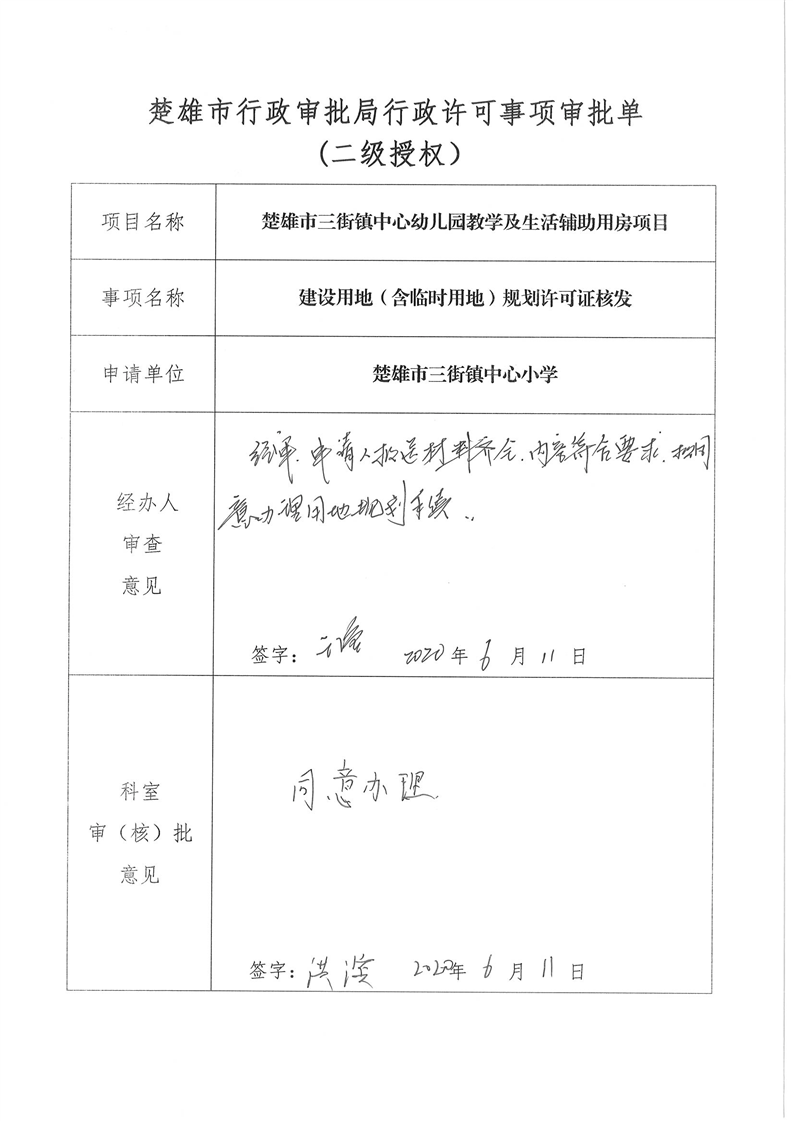 楚雄市行政审批局行政许可事项审批单
(二级授权)
项目名称
楚雄市三街镇中心幼儿园教学及生活辅助用房项目
事项名称
建设用地（含临时用地）规划许可证核发
申请单位
楚雄市三街镇中心小学
经办人
审查
意见
经审.申请人报送材料齐全.内容符合要求.拟同
意办理用地规划手续..
签字：
2020年6月11日
科室
审（核）批
意见
同意办理.
签字：洪滢 2020年6月11日